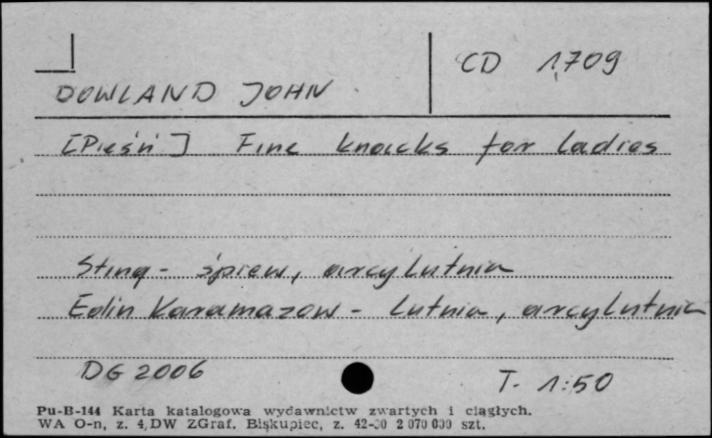 CD 1709
DOWLAND JOHN
[Pieśń] Fine knacks for ladies
Sting - śpiew, arcylutnia
Edin Karamazow - lutnia, arcylutnia
DG 2006 T. 1:50
Pu-B-144 Karta katalogowa wydawnictw zwartych i ciągłych.
WA O-n, z. 4, DW ZGraf. Biskupiec, z. 42-30 2 070 000 szt.